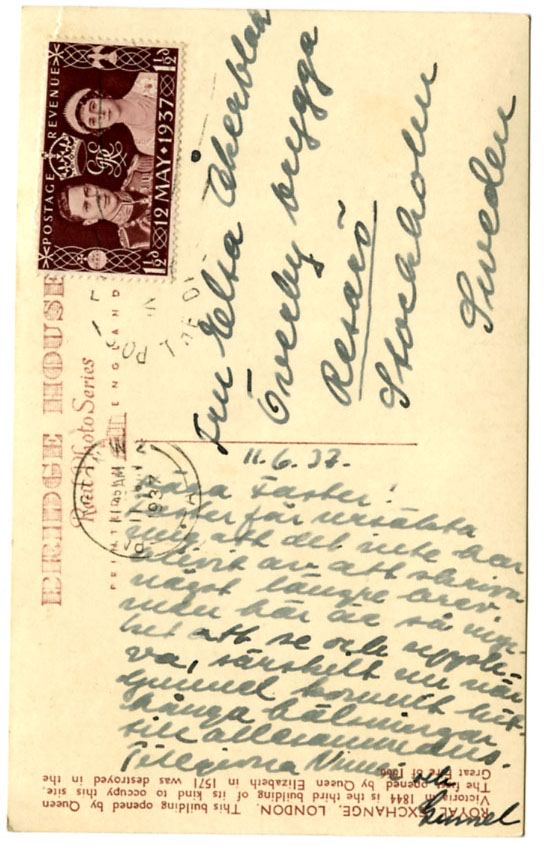 POSTAGE REVENUE
1½d 12 MAY 1937 1½d
BRIDGE HOUSE
Real Photo Series
ENGLAND
1937
Fru Elsa Åkerblad
Överby brygga
Resarö
Stockholm
Sweden
11.6.37.
Kära Faster!
Faster får ursäkta
mig att det inte har
blivit av att skriva
något längre brev
men här är så myc-
ket att se och upple-
va, särskilt nu när
Gunnel kommit hit.
Många hälsningar
till allesammans.
Tillgivna
och
Gunnel
ROYAL EXCHANGE, LONDON. This building opened by Queen
Victoria in 1844 is the third building of its kind to occupy this site.
The first opened by Queen Elizabeth in 1571 was destroyed in the
Great Fire of 1666